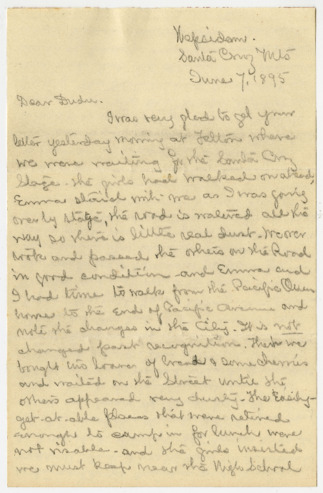 Santa Cruz Mts
June 7, 1895
Dear
I was very glad to get your
letter yesterday morning at Felton where
we were waiting for the Santa Cruz
Stage. The girls had walked on ahead,
Emma staid with me as I was going
over by stage, the road is watered all the
way so there is little real dust. We over
took and passed the others on the Road
in good condition and Emma and
I had time to walk from the Pacific Ocean
House to the end of Pacific Avenue and
note the changes in the City. It is not
changed past recognition. Then we
bought two loaves of bread & some cherries
and waited on the Street until the
others appeared very dusty. The Easily-
get-at-able places that were retired
enough to camp in for lunch were
not visable. and the girls insisted
we must keep near the High School